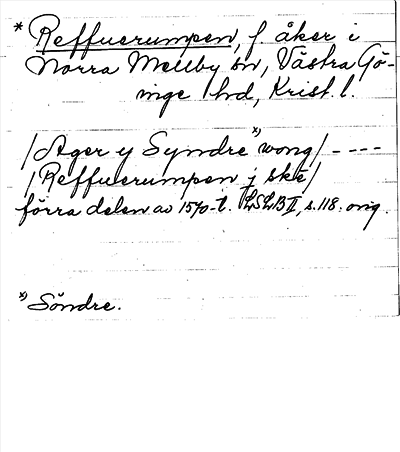 * Reffuerumpen, f. åker i
Norra Mellby sn, Västra Gö-
inge hd, Krist. l.
/Ager y Syndre *) wong/ ----
/Reffuerumpen j ske/
förra delen av 1570-t. LSLB II, s. 118. orig.
*) Söndre.